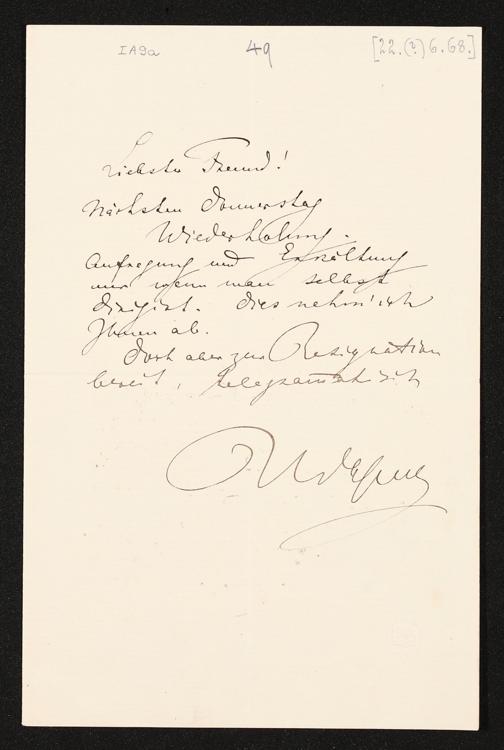 IA9a 49 [22.(?)6.68.]
Liebster Freund!
Nächsten Donnerstag
Wiederholung.
Aufregung und Erkältung
nur wenn man selbst
dirigirt. Dies nehm' ich
Ihnen ab.
Doch aber zur Resignation
bereit, telegraphisch